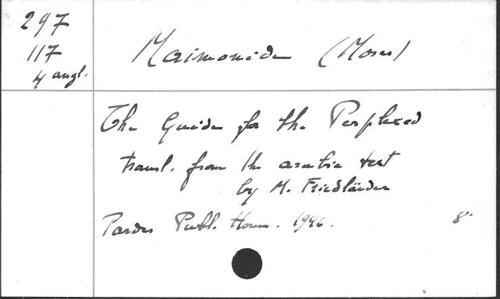 297
117
4 angl.
Maimonide (Moses)
The Guide for the Perplexed
transl. from the arabic text
by M. Friedländer
Pardes Publ. House. 1946. 8°